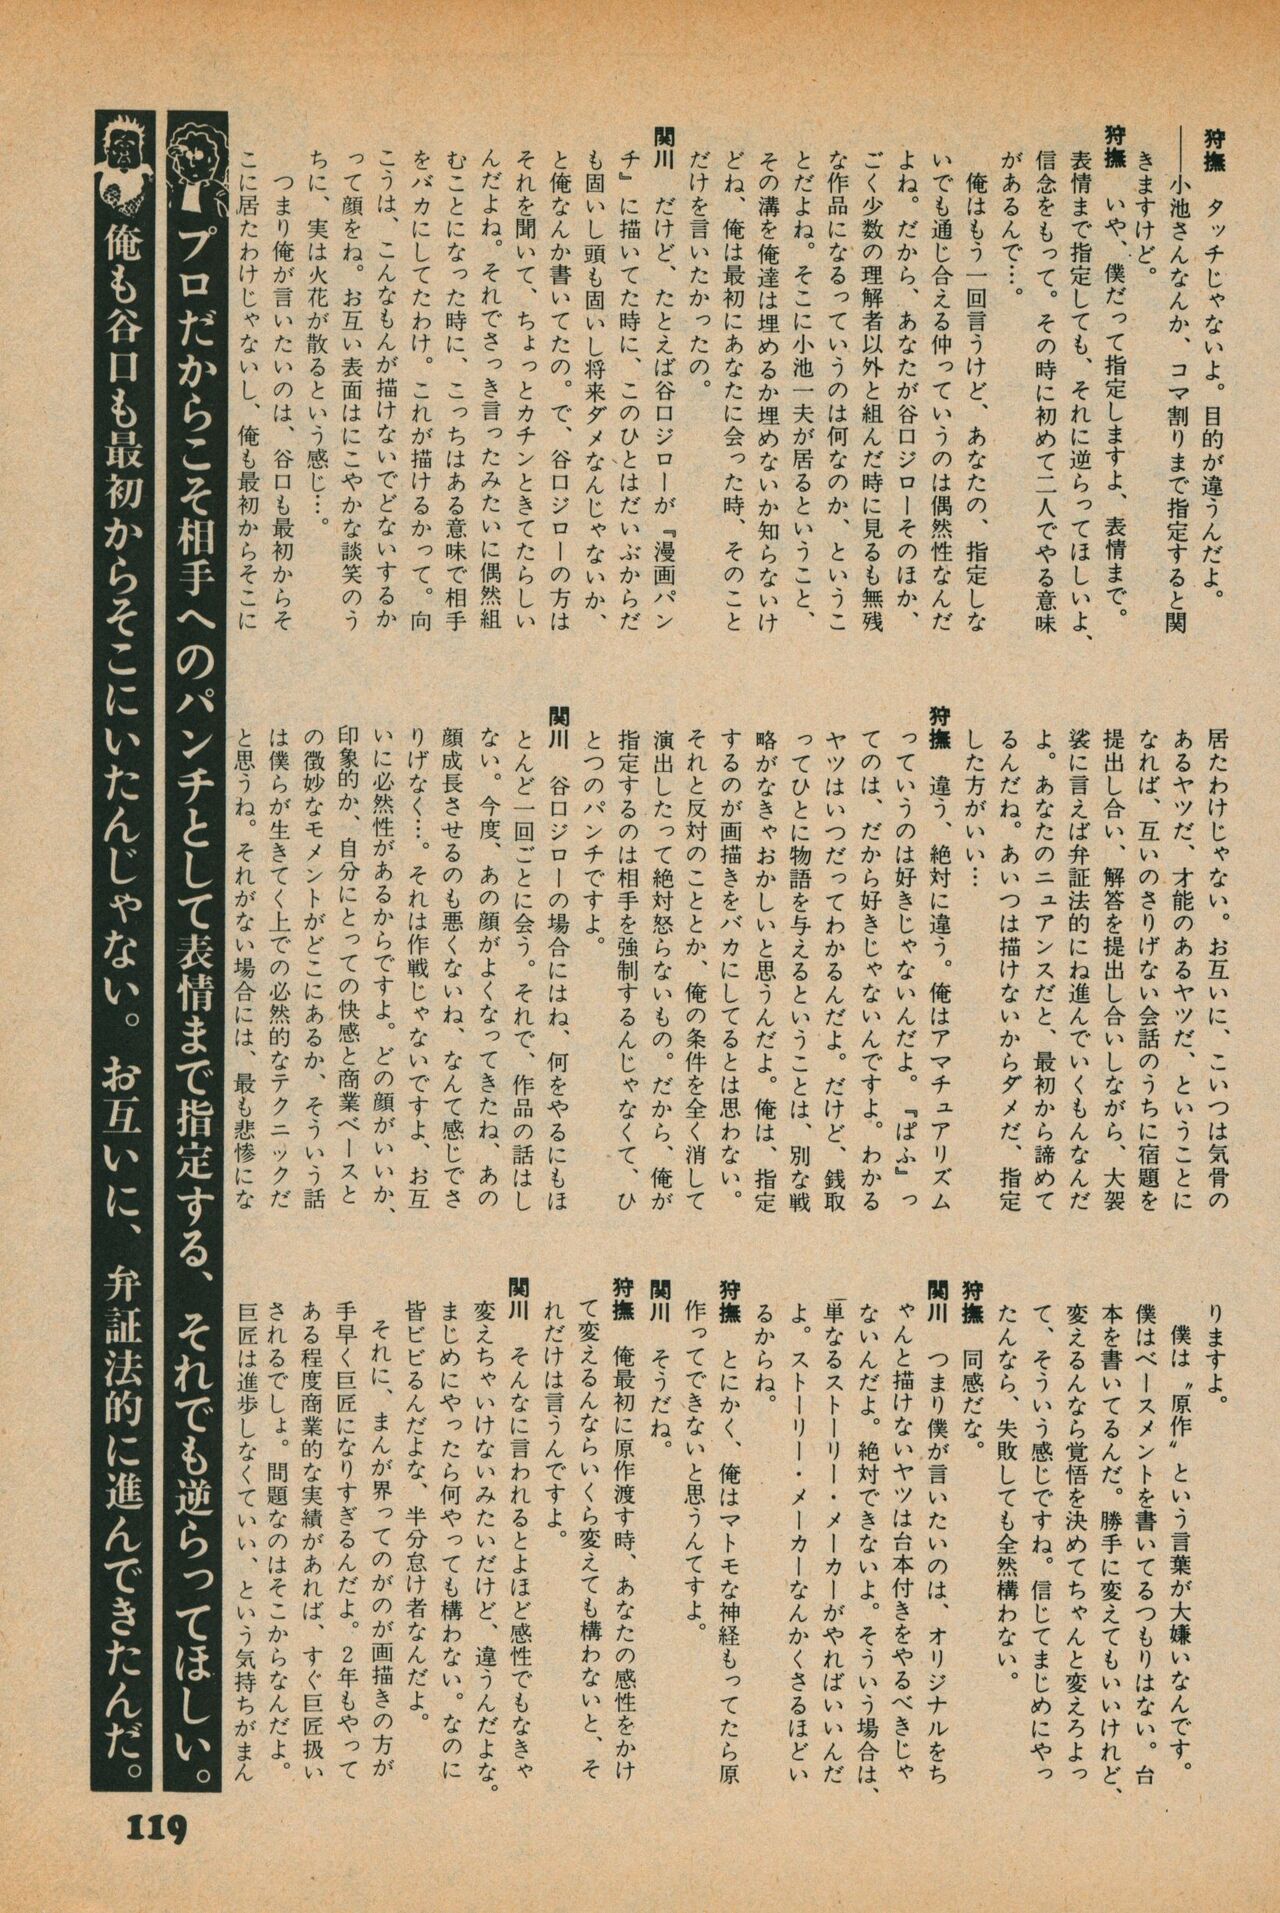 狩撫　タッチじゃないよ。目的が違うんだよ。
――小池さんなんか、コマ割りまで指定すると関
きますけど。
狩撫　いや、僕だって指定しますよ、表情まで。
表情まで指定しても、それに逆らってほしいよ、
信念をもって。その時に初めて二人でやる意味
があるんで…。
　俺はもう一回言うけど、あなたの、指定しな
いでも通じ合える仲っていうのは偶然性なんだ
よね。だから、あなたが谷口ジローそのほか、
ごく少数の理解者以外と組んだ時に見るも無残
な作品になるっていうのは何なのか、というこ
とだよね。そこに小池一夫が居るということ、
その溝を俺達は埋めるか埋めないか知らないけ
どね、俺は最初にあなたに会った時、そのこと
だけを言いたかったの。
関川　だけど、たとえば谷口ジローが『漫画パン
チ』に描いてた時に、このひとはだいぶからだ
も固いし頭も固いし将来ダメなんじゃないか、
と俺なんか書いてたの。で、谷口ジローの方は
それを聞いて、ちょっとカチンときてたらしい
んだよね。それでさっき言ったみたいに偶然組
むことになった時に、こっちはある意味で相手
をバカにしてたわけ。これが描けるかって。向
こうは、こんなもんが描けないでどないするか
って顔をね。お互い表面はにこやかな談笑のう
ちに、実は火花が散るという感じ…。
　つまり俺が言いたいのは、谷口も最初からそ
こに居たわけじゃないし、俺も最初からそこに
居たわけじゃない。お互いに、こいつは気骨の
あるヤツだ、才能のあるヤツだ、ということに
なれば、互いのさりげない会話のうちに宿題を
提出し合い、解答を提出し合いしながら、大袈
裟に言えば弁証法的にね進んでいくもんなんだ
よ。あなたのニュアンスだと、最初から諦めて
るんだね。あいつは描けないからダメだ、指定
した方がいい…
狩撫　違う、絶対に違う。俺はアマチュアリズム
っていうのは好きじゃないんだよ。『ぱふ』っ
てのは、だから好きじゃないんですよ。わかる
ヤツはいつだってわかるんだよ。だけど、銭取
ってひとに物語を与えるということは、別な戦
略がなきゃおかしいと思うんだよ。俺は、指定
するのが画描きをバカにしてるとは思わない。
それと反対のこととか、俺の条件を全く消して
演出したって絶対怒らないもの。だから、俺が
指定するのは相手を強制するんじゃなくて、ひ
とつのパンチですよ。
関川　谷口ジローの場合にはね、何をやるにもほ
とんど一回ごとに会う。それで、作品の話はし
ない。今度、あの顔がよくなってきたね、あの
顔成長させるのも悪くないね、なんて感じでさ
りげなく…。それは作戦じゃないですよ、お互
いに必然性があるからですよ。どの顔がいいか、
印象的か、自分にとっての快感と商業ベースと
の微妙なモメントがどこにあるか、そういう話
は僕らが生きてく上での必然的なテクニックだ
と思うね。それがない場合には、最も悲惨にな
りますよ。
　僕は〝原作〟という言葉が大嫌いなんです。
僕はベースメントを書いてるつもりはない。台
本を書いてるんだ。勝手に変えてもいいけれど、
変えるんなら覚悟を決めてちゃんと変えろよっ
て、そういう感じですね。信じてまじめにやっ
たんなら、失敗しても全然構わない。
狩撫　同感だな。
関川　つまり僕が言いたいのは、オリジナルをち
ゃんと描けないヤツは台本付きをやるべきじゃ
ないんだよ。絶対できないよ。そういう場合は、
単なるストーリー・メーカーがやればいいんだ
よ。ストーリー・メーカーなんかくさるほどい
るからね。
狩撫　とにかく、俺はマトモな神経もってたら原
作ってできないと思うんてすよ。
関川　そうだね。
狩撫　俺最初に原作渡す時、あなたの感性をかけ
て変えるんならいくら変えても構わないと、そ
れだけは言うんですよ。
関川　そんなに言われるとよほど感性でもなきゃ
変えちゃいけないみたいだけど、違うんだよな。
まじめにやったら何やっても構わない。なのに
皆ビビるんだよな、半分怠け者なんだよ。
　それに、まんが界ってのがのが画描きの方が
手早く巨匠になりすぎるんだよ。２年もやって
ある程度商業的な実績があれば、すぐ巨匠扱い
されるでしょ。問題なのはそこからなんだよ。
巨匠は進歩しなくていい、という気持ちがまん
プロだからこそ相手へのパンチとして表情まで指定する、それでも逆らってほしい。
俺も谷口も最初からそこにいたんじゃない。お互いに、弁証法的に進んできたんだ。
119